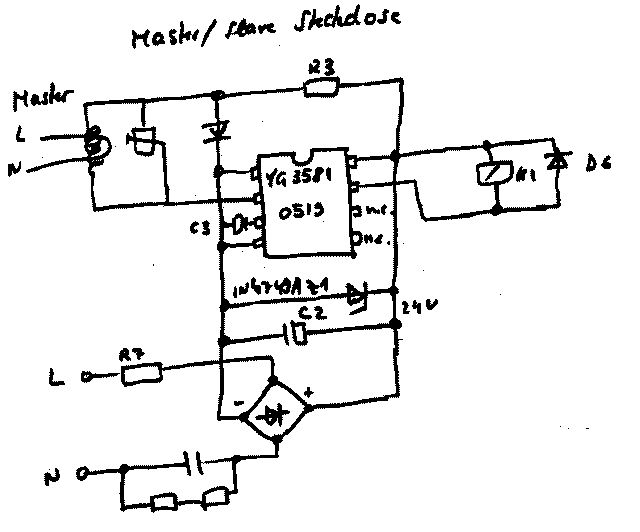 Master/Slave Steckdose
R3
Master
L
N
YG3581
0519
C3
n.c.
n.c.
K1
D6
1N4749A Z1
24V
C2
L
R7
-
+
N